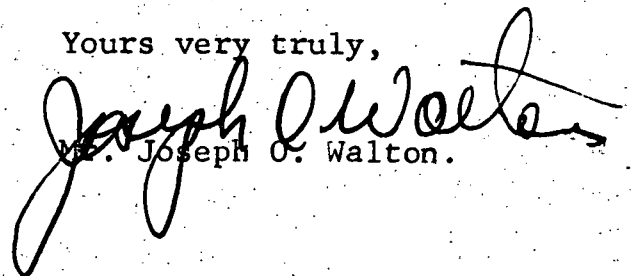 Yours very truly,
Joseph O Walton
Mr. Joseph O. Walton.